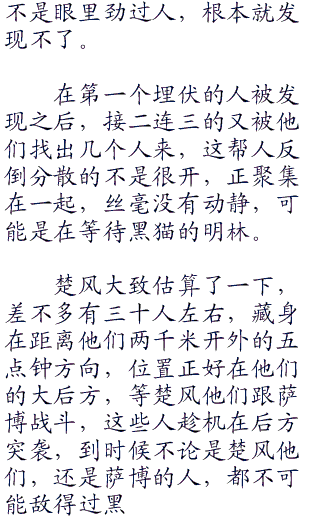 不是眼里劲过人，根本就发
现不了。
在第一个埋伏的人被发
现之后，接二连三的又被他
们找出几个人来，这帮人反
倒分散的不是很开，正聚集
在一起，丝毫没有动静，可
能是在等待黑猫的明林。
楚风大致估算了一下，
差不多有三十人左右，藏身
在距离他们两千米开外的五
点钟方向，位置正好在他们
的大后方，等楚风他们跟萨
博战斗，这些人趁机在后方
突袭，到时候不论是楚风他
们，还是萨博的人，都不可
能敌得过黑